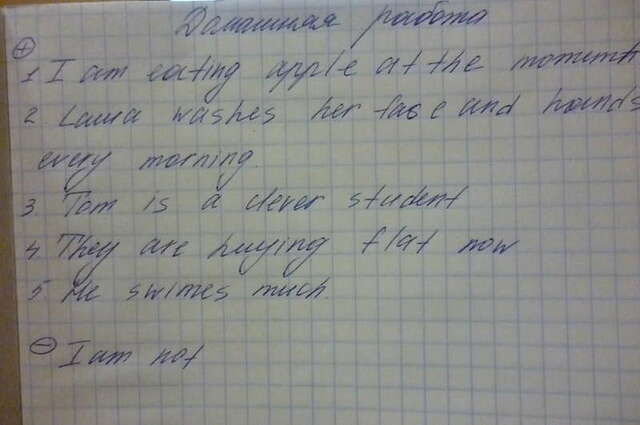 Домашняя работа
+
1 I am eating apple at the moment
2 Laura washes her face and hands
every morning.
3 Tom is a clever student
4 They are buying flat now
5 He swimes much.
- I am not